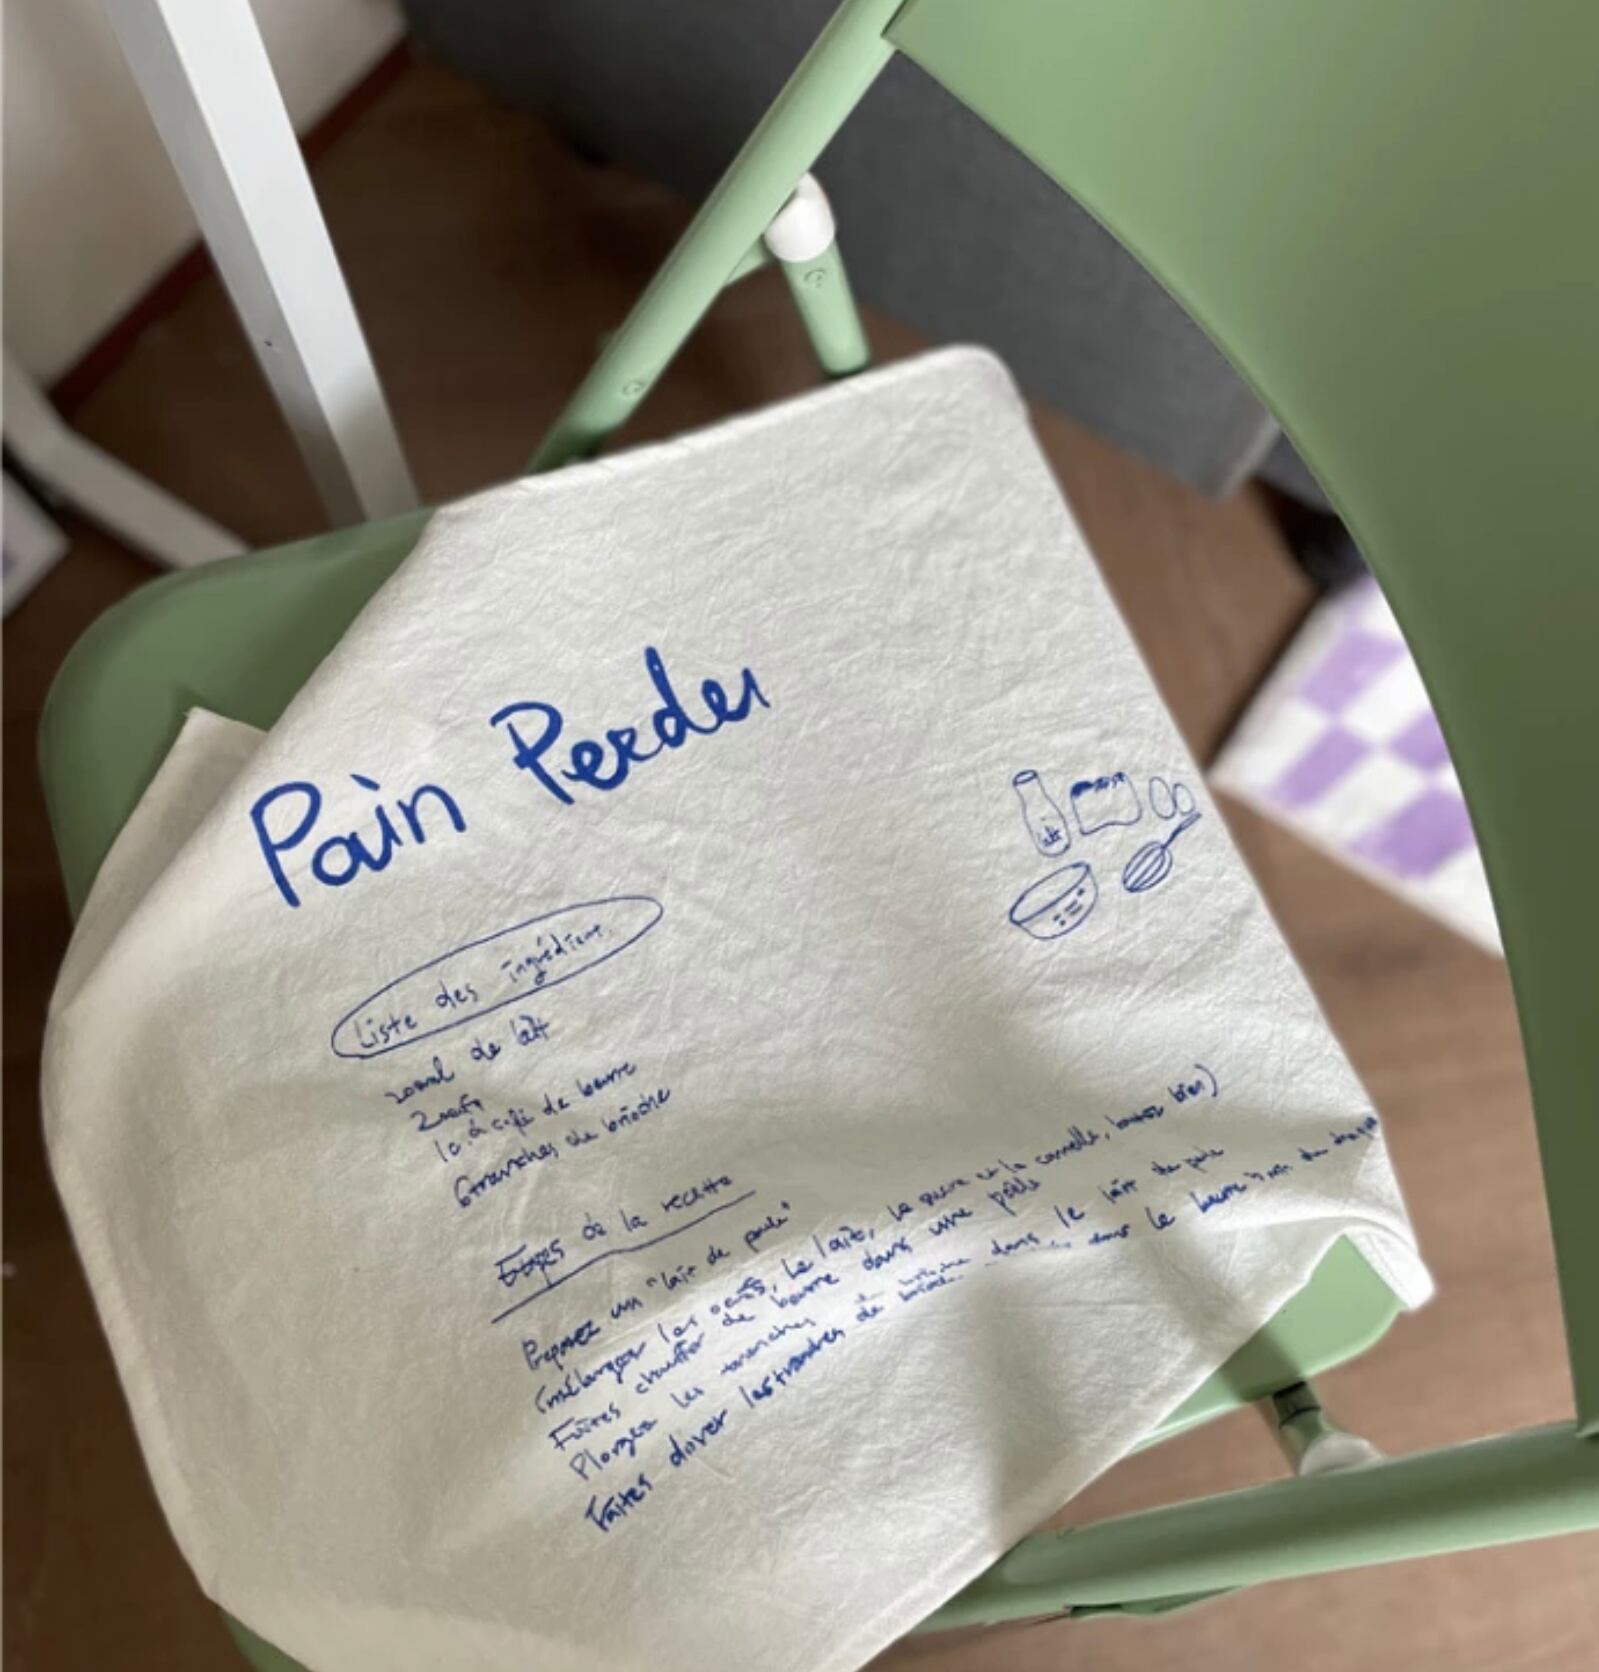 Pain Perdu
lait
Liste des ingrédients
200ml de lait
2 oeufs
1 c. à café de beurre
6 tranches de brioche
Etapes de la recette
Préparez un "lait de poule"
(mélanger les oeufs, le lait, le sucre et la cannelle, battez bien)
Faites chauffer de beurre dans une poêle
Plongez les tranches de brioche dans le lait de poule
Faites dorer les tranches de brioche dans le beurre